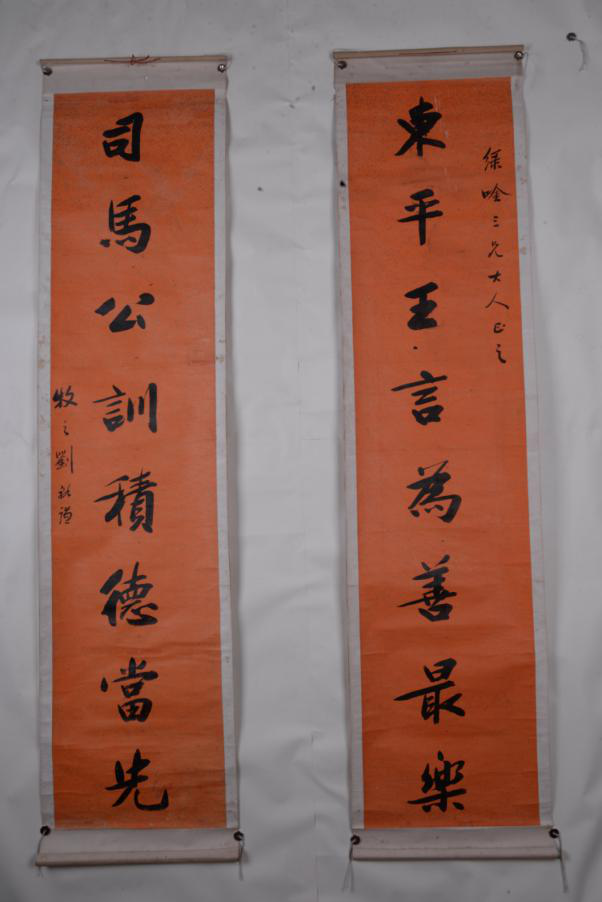 唫三兄大人正之
東平王言為善最樂
司馬公訓積德當先
牧之劉